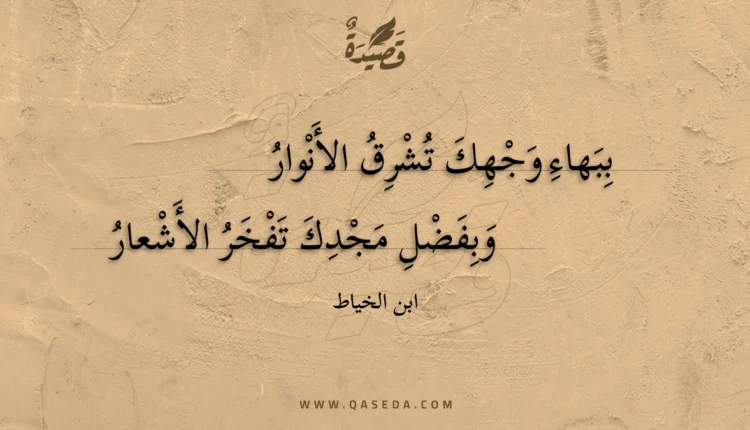 قَصِيدَةٌ
بِبَهاءِ وَجْهِكَ تُشْرِقُ الأَنْوارُ
وَبِفَضْلِ مَجْدِكَ تَفْخَرُ الأَشْعارُ
ابن الخياط
WWW.QASEDA.COM